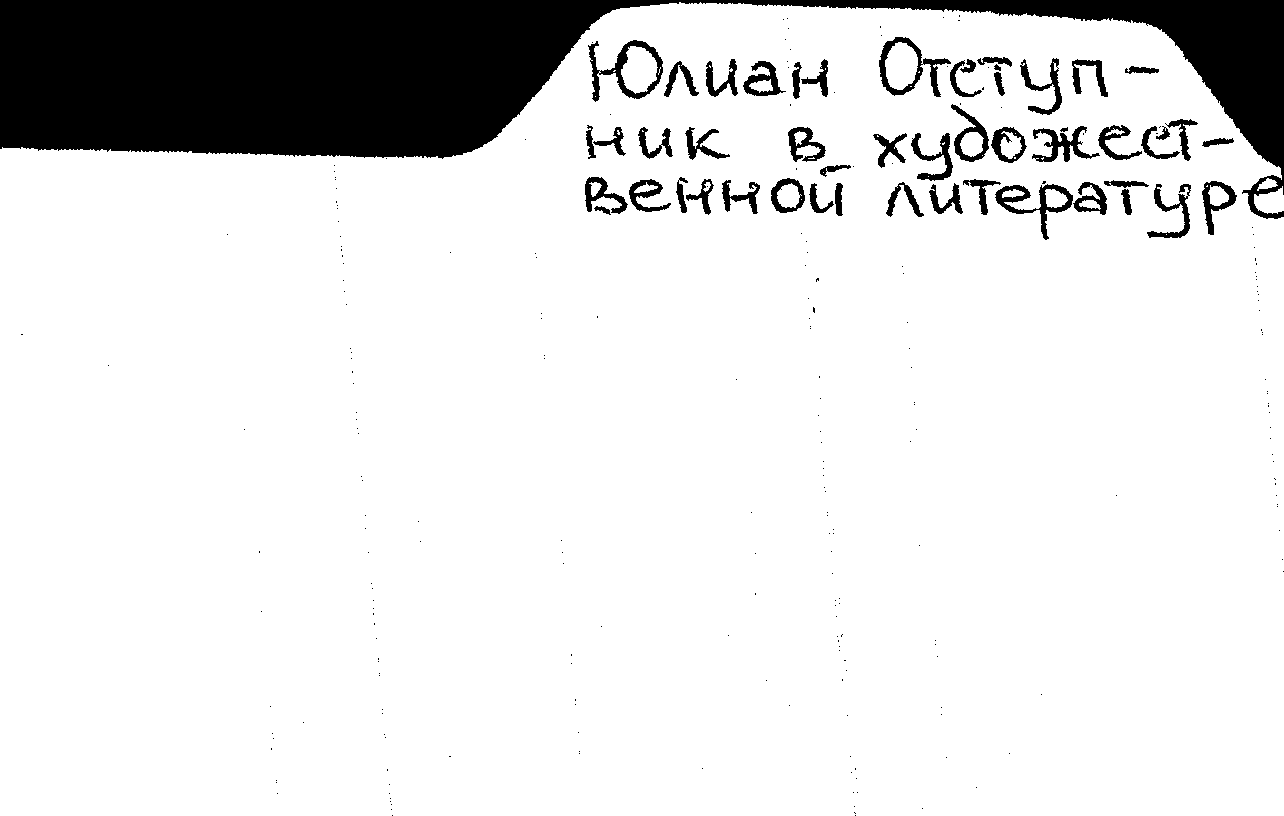 Юлиан Отступ-
ник в художест-
венной литературе